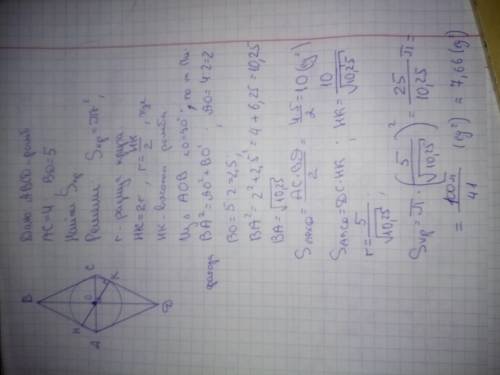 Дано ABCD ромб
AC=4 BD=5
Найти Sкр
Решение Sкр=πr²,
r - радиус круга
HK=2r, r=HK/2, где
HK высота ромба
Из △ AOB ∠O=90°, по т. Пи-
фагора
BA²=AO²+BO² AO=4:2=2
BO=5:2=2,5,
BA²=2²+2,5²=4+6,25=10,25
BA=√10,25
SABCD=AC·BD/2=4·5/2=10(g²)
SABCD=DC·HK, HK=10/√10,25
r=5/√10,25,
Sкр=π·(5/√10,25)²=25/10,25 π=
=100π/41 (g²)=7,66(g²)
B
H
A
O
C
K
D